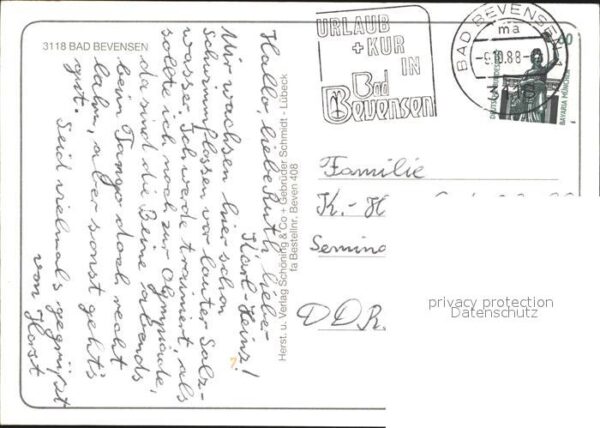 3118 BAD BEVENSEN
Hallo, liebe Ruth, lieber
Karl-Heinz!
Mir wachsen hier schon
Schwimmflossen vor lauter Salz-
wasser. Ich werde trainiert, als
sollte ich noch zur Olympiade,
da sind die Beine abends
beim Tango doch recht
lahm, aber sonst geht's
gut.
Seid vielmals gegrüßt
von Horst
Herst. u. Verlag Schöning & Co + Gebrüder Schmidt - Lübeck
fa Bestellnr. Beven 408
URLAUB
+ KUR
IN
Bad
Bevensen
BAD BEVENSEN 1
ma
-9.10.88-
3118
60
DEUTSCHE BUNDESPOST
BAVARIA MÜNCHEN
Familie
K.-H
Semin
DDR
privacy protection
Datenschutz